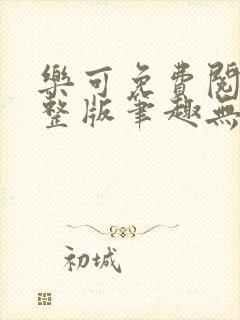 樂可免費閱
整版筆趣無
初城